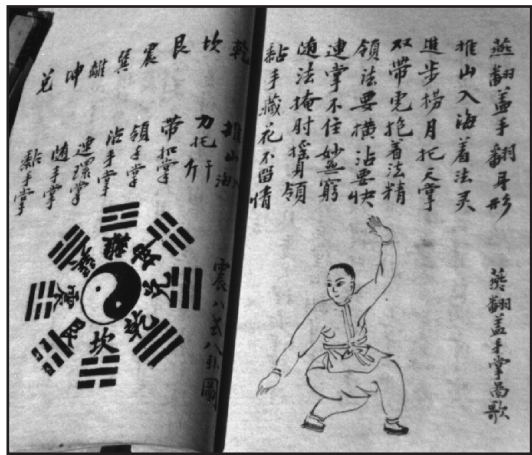 燕翻盖手翻身形
推山入海着法灵
進步捞月托天掌
双带抱着法精
领法要横沾要快
連掌不住妙無穷
随法掩肘摇身领
黏手藏花不留情
燕翻盖手掌歌
乾 坎 艮 震 巽 離 坤 兑
推山海
力托千斤
带扣掌
领手掌
沾手掌
連環掌
随手掌
黏手掌
震八八卦圖
離 坤 兑 乾 坎 艮 震 巽